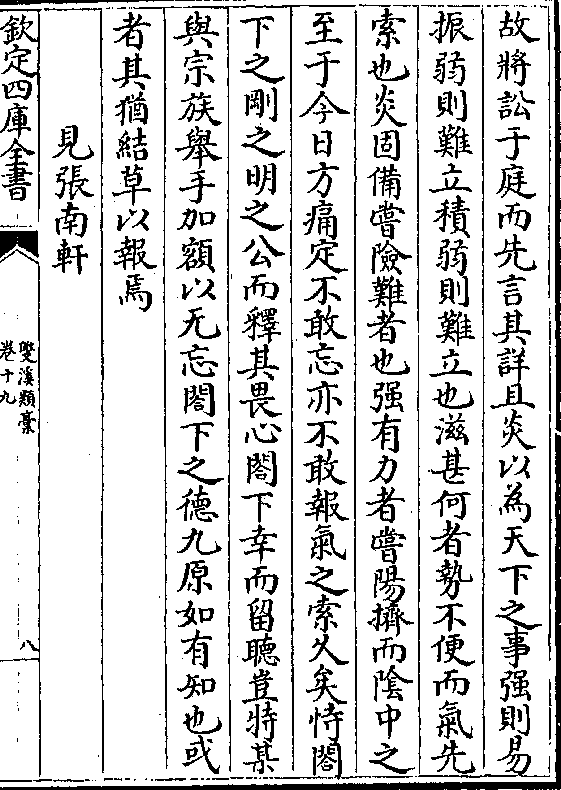 故將訟于庭而先言其詳且炎以為天下之事强則易
振弱則難立積弱則難立也滋甚何者勢不便而氣先
索也炎固備嘗險難者也强有力者嘗陽擠而陰中之
至于今日方痛定不敢忘亦不敢報氣之索久矣恃閤
下之剛之明之公而釋其畏心閤下幸而留聽豈特某
與宗族舉手加額以无忘閤下之德九原如有知也或
者其猶結草以報焉
見張南軒
欽定四庫全書
雙溪類藁
卷十九
八